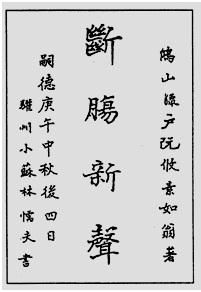 鴻山獵戶阮攸素如翁著
斷腸新聲
嗣德庚午中秋後四日
驩州小蘇林懦夫書